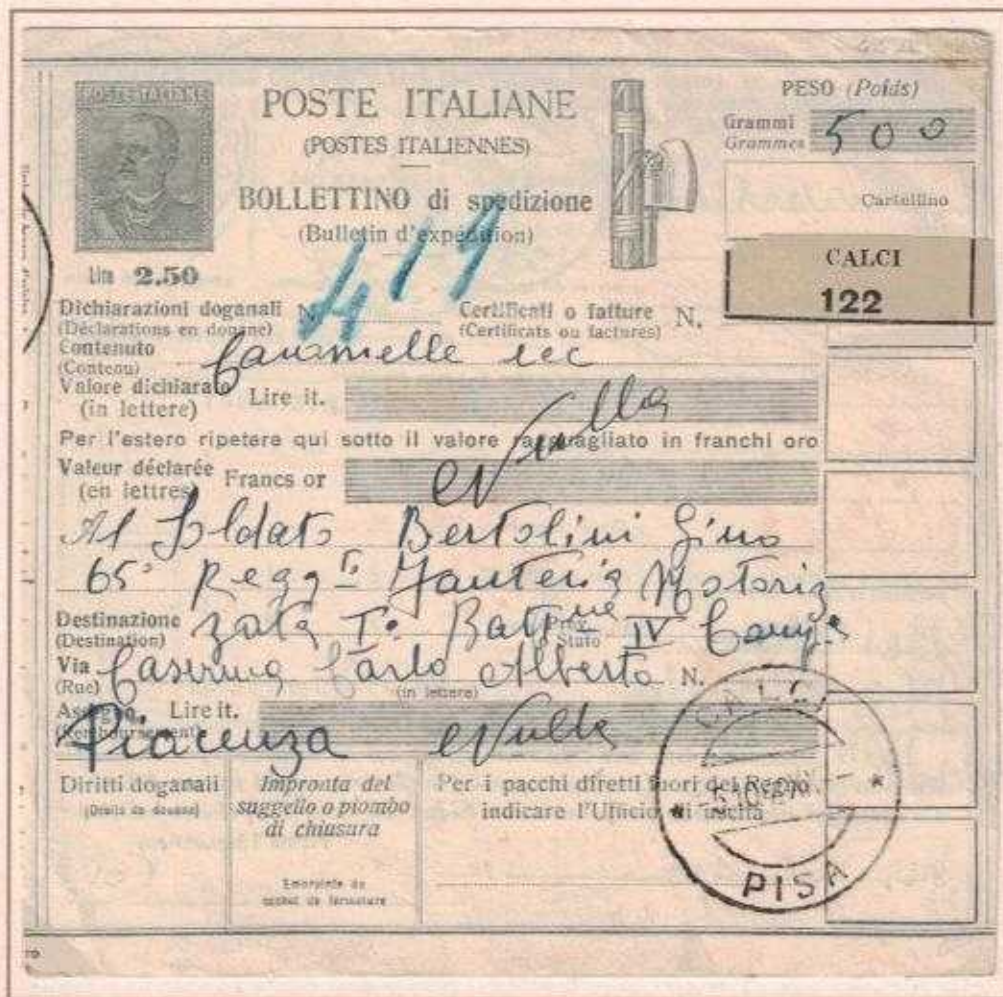 POSTE ITALIANE
POSTE ITALIANE
(POSTES ITALIENNES)
BOLLETTINO di spedizione
(Bulletin d'expédition)
Lire 2.50
PESO (Poids)
Grammi
Grammes
500
Cartellino
CALCI
122
411
Dichiarazioni doganali N.
(Déclarations en douane)
Certificati o fatture N.
(Certificats ou factures)
Contenuto
(Contenu)
Caramelle ecc
Valore dichiarato Lire it.
(in lettere)
Nulla
Per l'estero ripetere qui sotto il valore ragguagliato in franchi oro
Valeur déclarée Francs or
(en lettres)
Al Soldato Bertolini Gino
65° Regg.to Fanteria Motoriz
Destinazione
(Destination)
zata I° Batt.ne IV Comp.a
Stato
Via
(Rue)
Caserma Carlo Alberto N.
(in lettere)
Assegno Lire it.
(Remboursement)
Piacenza Nulla
CALCI
PISA
Diritti doganali
(Droits de douane)
Impronta del
suggello o piombo
di chiusura
Empreinte du
cachet de fermeture
Per i pacchi diretti fuori del Regno
indicare l'Ufficio di uscita